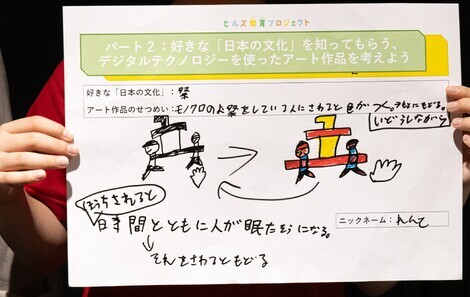 ヒルズ街育プロジェクト
パート2：好きな「日本の文化」を知ってもらう、
デジタルテクノロジーを使ったアート作品を考えよう
好きな「日本の文化」：祭
アート作品のせつめい：モノクロの人が祭をしていて人にさわると色がつく。
いどうしながら
ほうちされると
時間とともに人が眠たそうになる。
それをさわるともどる
ニックネーム：れんと